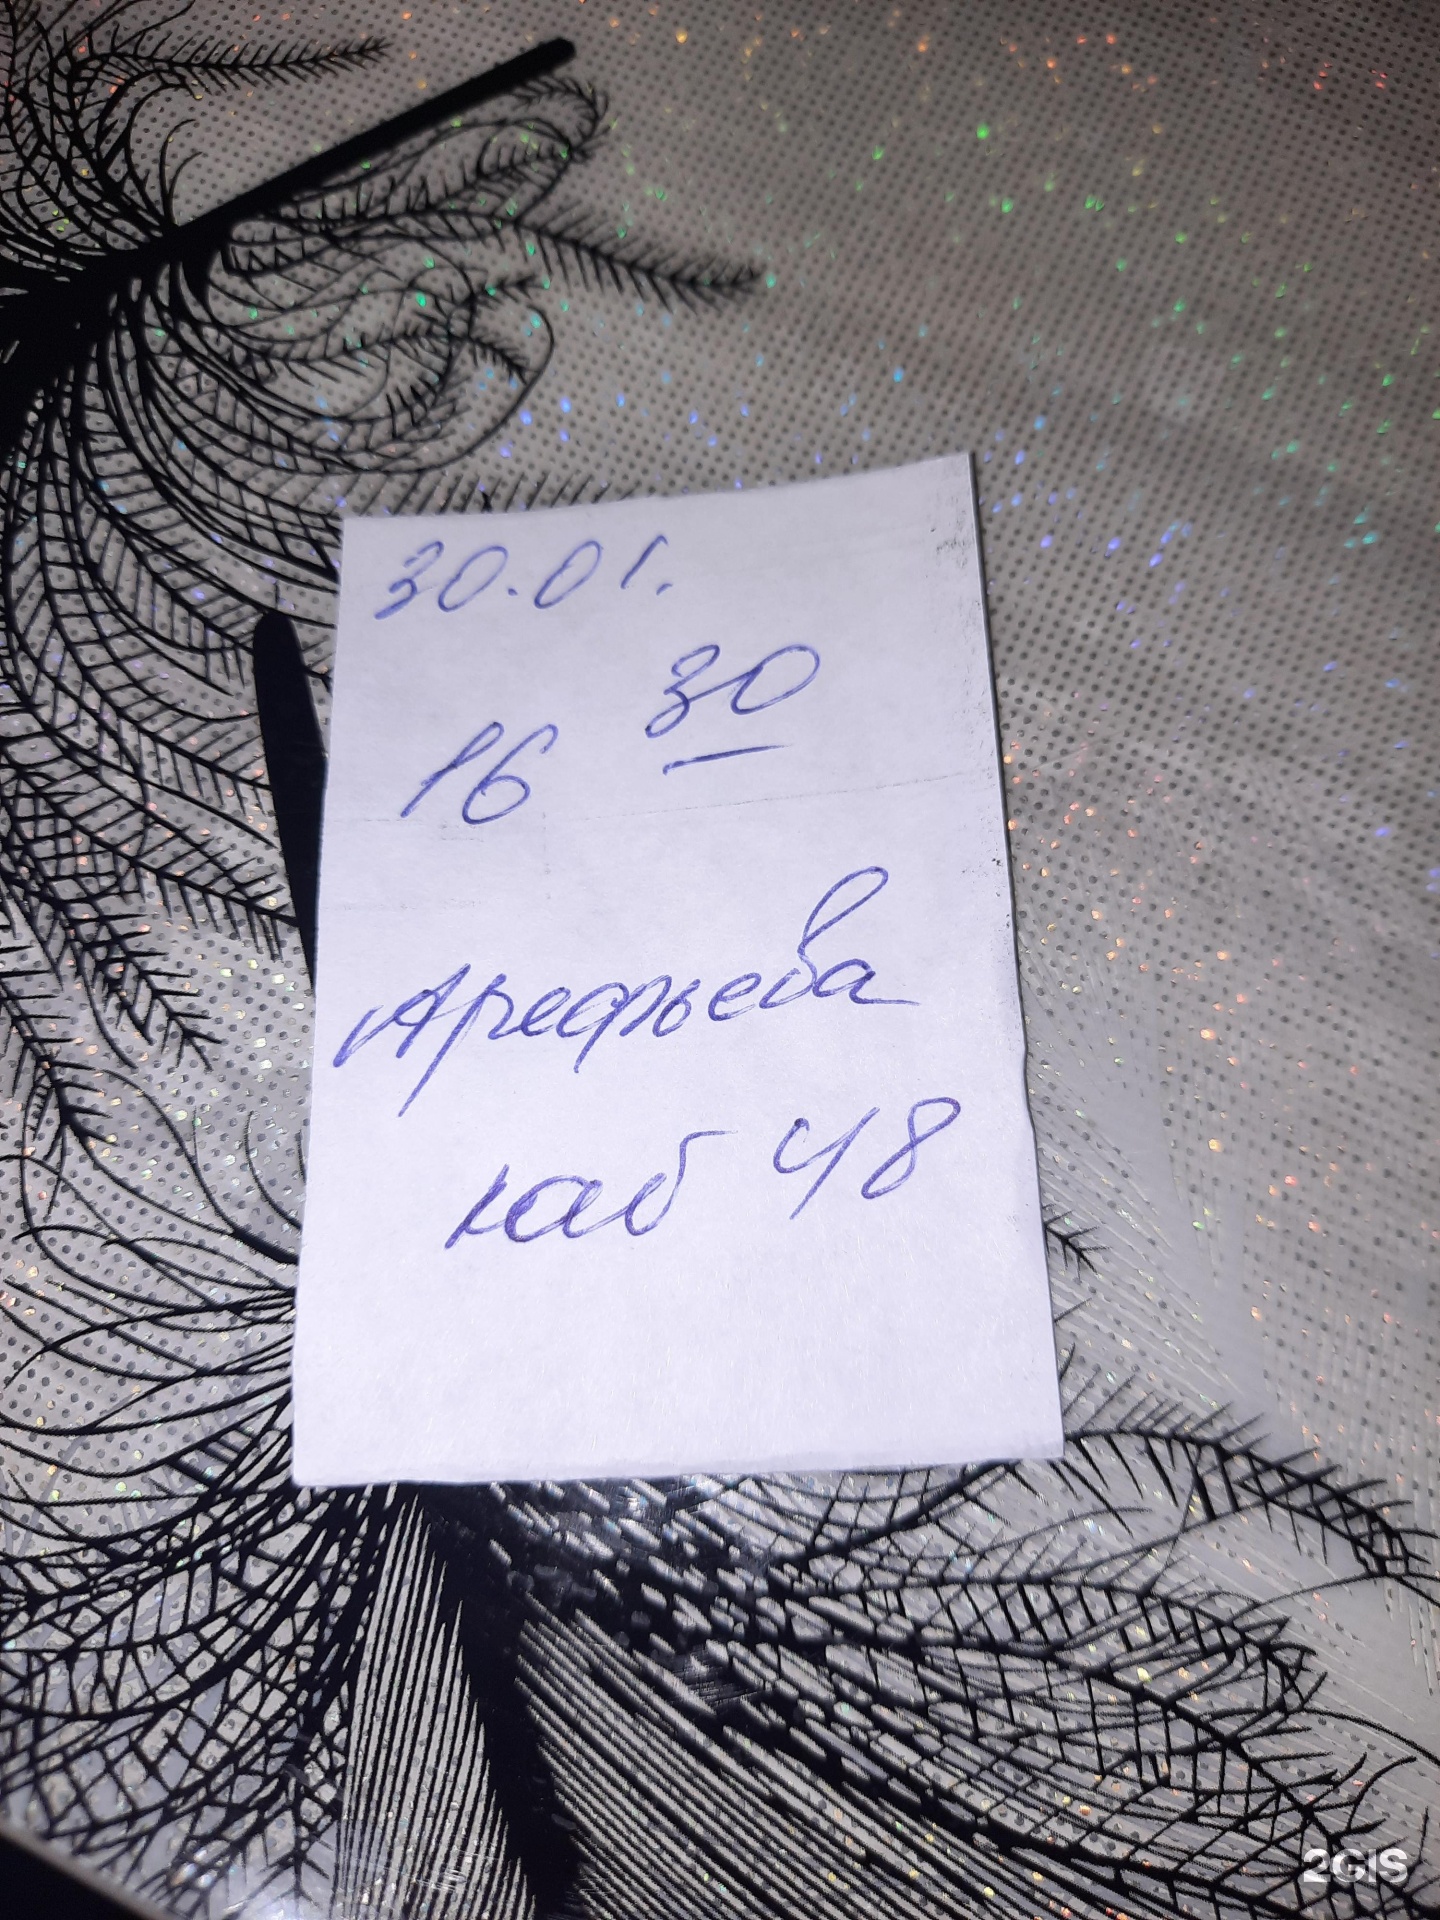 30.01.
16 30
Арефьева
каб 48
2GIS